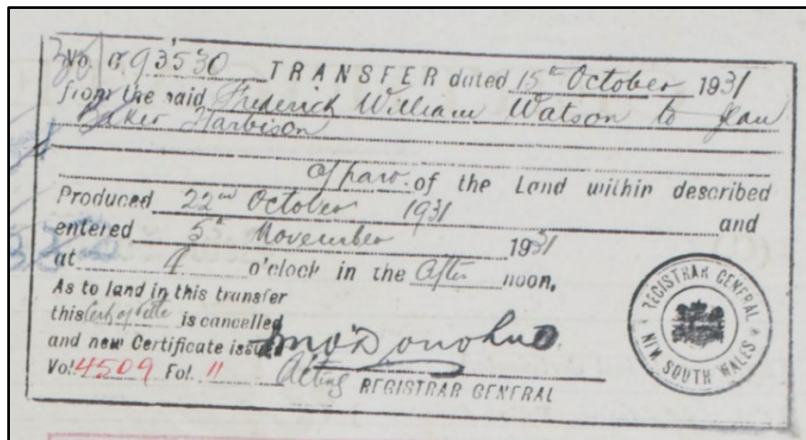 No. B93530 TRANSFER dated 15th October 1931
from the said Frederick William Watson to Jean
Baker Harbison
of part of the Land within described
Produced 22nd October 1931 and
entered 5th November 1931
at 4 o'clock in the After noon,
As to land in this transfer
this Cert of Title is cancelled
and new Certificate issued
Vol. 4509 Fol. 11
Acting REGISTRAR GENERAL
REGISTRAR GENERAL
NEW SOUTH WALES